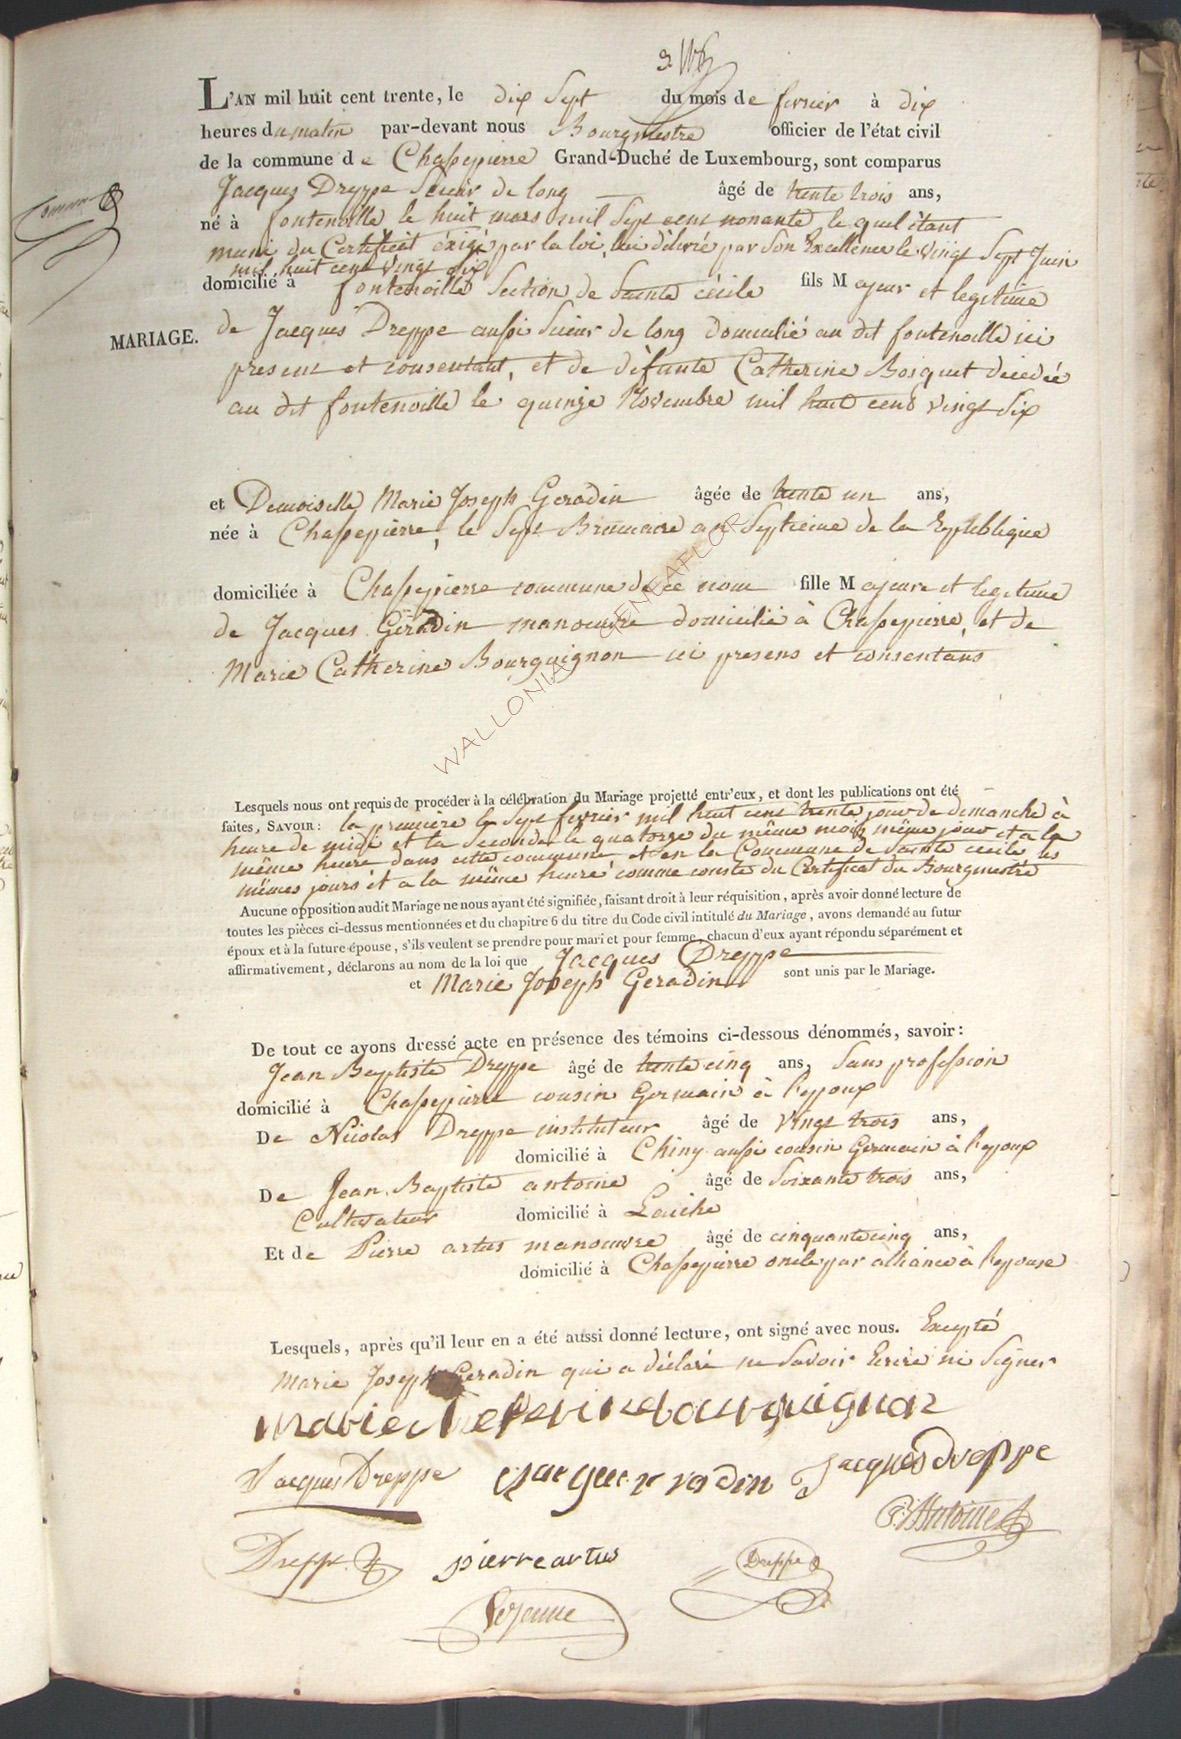 L'AN mil huit cent trente, le dix Sept du mois de fevrier à dix
heures du matin par-devant nous Bourgmestre officier de l'état civil
de la commune de Chassepierre Grand-Duché de Luxembourg, sont comparus
Jacques Dreppe Scieur de long âgé de trente trois ans,
né à fontenoille le huit mars mil Sept cent nonante le quel étant
muni du Certificat éxigé par la loi, lui délivré par Son Excellence le vingt Sept Juin
mil huit cent vingt dix
domicilié à fontenoille Section de Sainte cécile fils Majeur et legitime
MARIAGE.
de Jacques Dreppe aussi Scieur de long domicilié au dit fontenoille ici
present et consentant, et de défunte Catherine Bosquet décédée
au dit fontenoille le quinze Novembre mil huit cent vingt Six
et Demoiselle Marie Joseph Geradin âgée de trente un ans,
née à Chassepierre, le Sept Brumaire an Septieme de la République
domiciliée à Chassepierre commune de ce nom fille Majeure et legitime
de Jacques Géradin manoeuvre domicilié à Chassepierre, et de
Marie Catherine Bourguignon ici presens et consentans
WALLONIA GENEAFLOR
Lesquels nous ont requis de procéder à la célébration du Mariage projetté entr'eux, et dont les publications ont été
faites, SAVOIR: la première le Sept fevrier mil huit cent trente jour de dimanche à
heure de midi et la Seconde le quatorze du même mois même jour et a la
même heure dans cette commune et en la Commune de Sainte cecile les
mêmes jours et a la même heure comme conste du Certificat du Bourgmestre
Aucune opposition audit Mariage ne nous ayant été signifiée, faisant droit à leur réquisition, après avoir donné lecture de
toutes les pièces ci-dessus mentionnées et du chapitre 6 du titre du Code civil intitulé du Mariage, avons demandé au futur
époux et à la future épouse, s'ils veulent se prendre pour mari et pour femme, chacun d'eux ayant répondu séparément et
affirmativement, déclarons au nom de la loi que Jacques Dreppe
et Marie Joseph Geradin sont unis par le Mariage.
De tout ce ayons dressé acte en présence des témoins ci-dessous dénommés, savoir:
Jean Baptiste Dreppe âgé de trente cinq ans, Sans profession
domicilié à Chassepierre cousin Germain à l'epoux
De Nicolas Dreppe instituteur âgé de vingt trois ans,
domicilié à Chiny aussi cousin Germain à l'epoux
De Jean Baptiste antoine âgé de Soixante trois ans,
Cultivateur domicilié à Laiche
Et de Pierre artus manoeuvre âgé de cinquante cinq ans,
domicilié à Chassepierre oncle par alliance à l'epouse
Lesquels, après qu'il leur en a été aussi donné lecture, ont signé avec nous. Excepté
Marie Joseph Geradin qui a déclaré ne Savoir Ecrire ni Signer
Jacques Dreppe Jacques Dreppe
Antoine
Dreppe pierre artus Dreppe
Lejeune